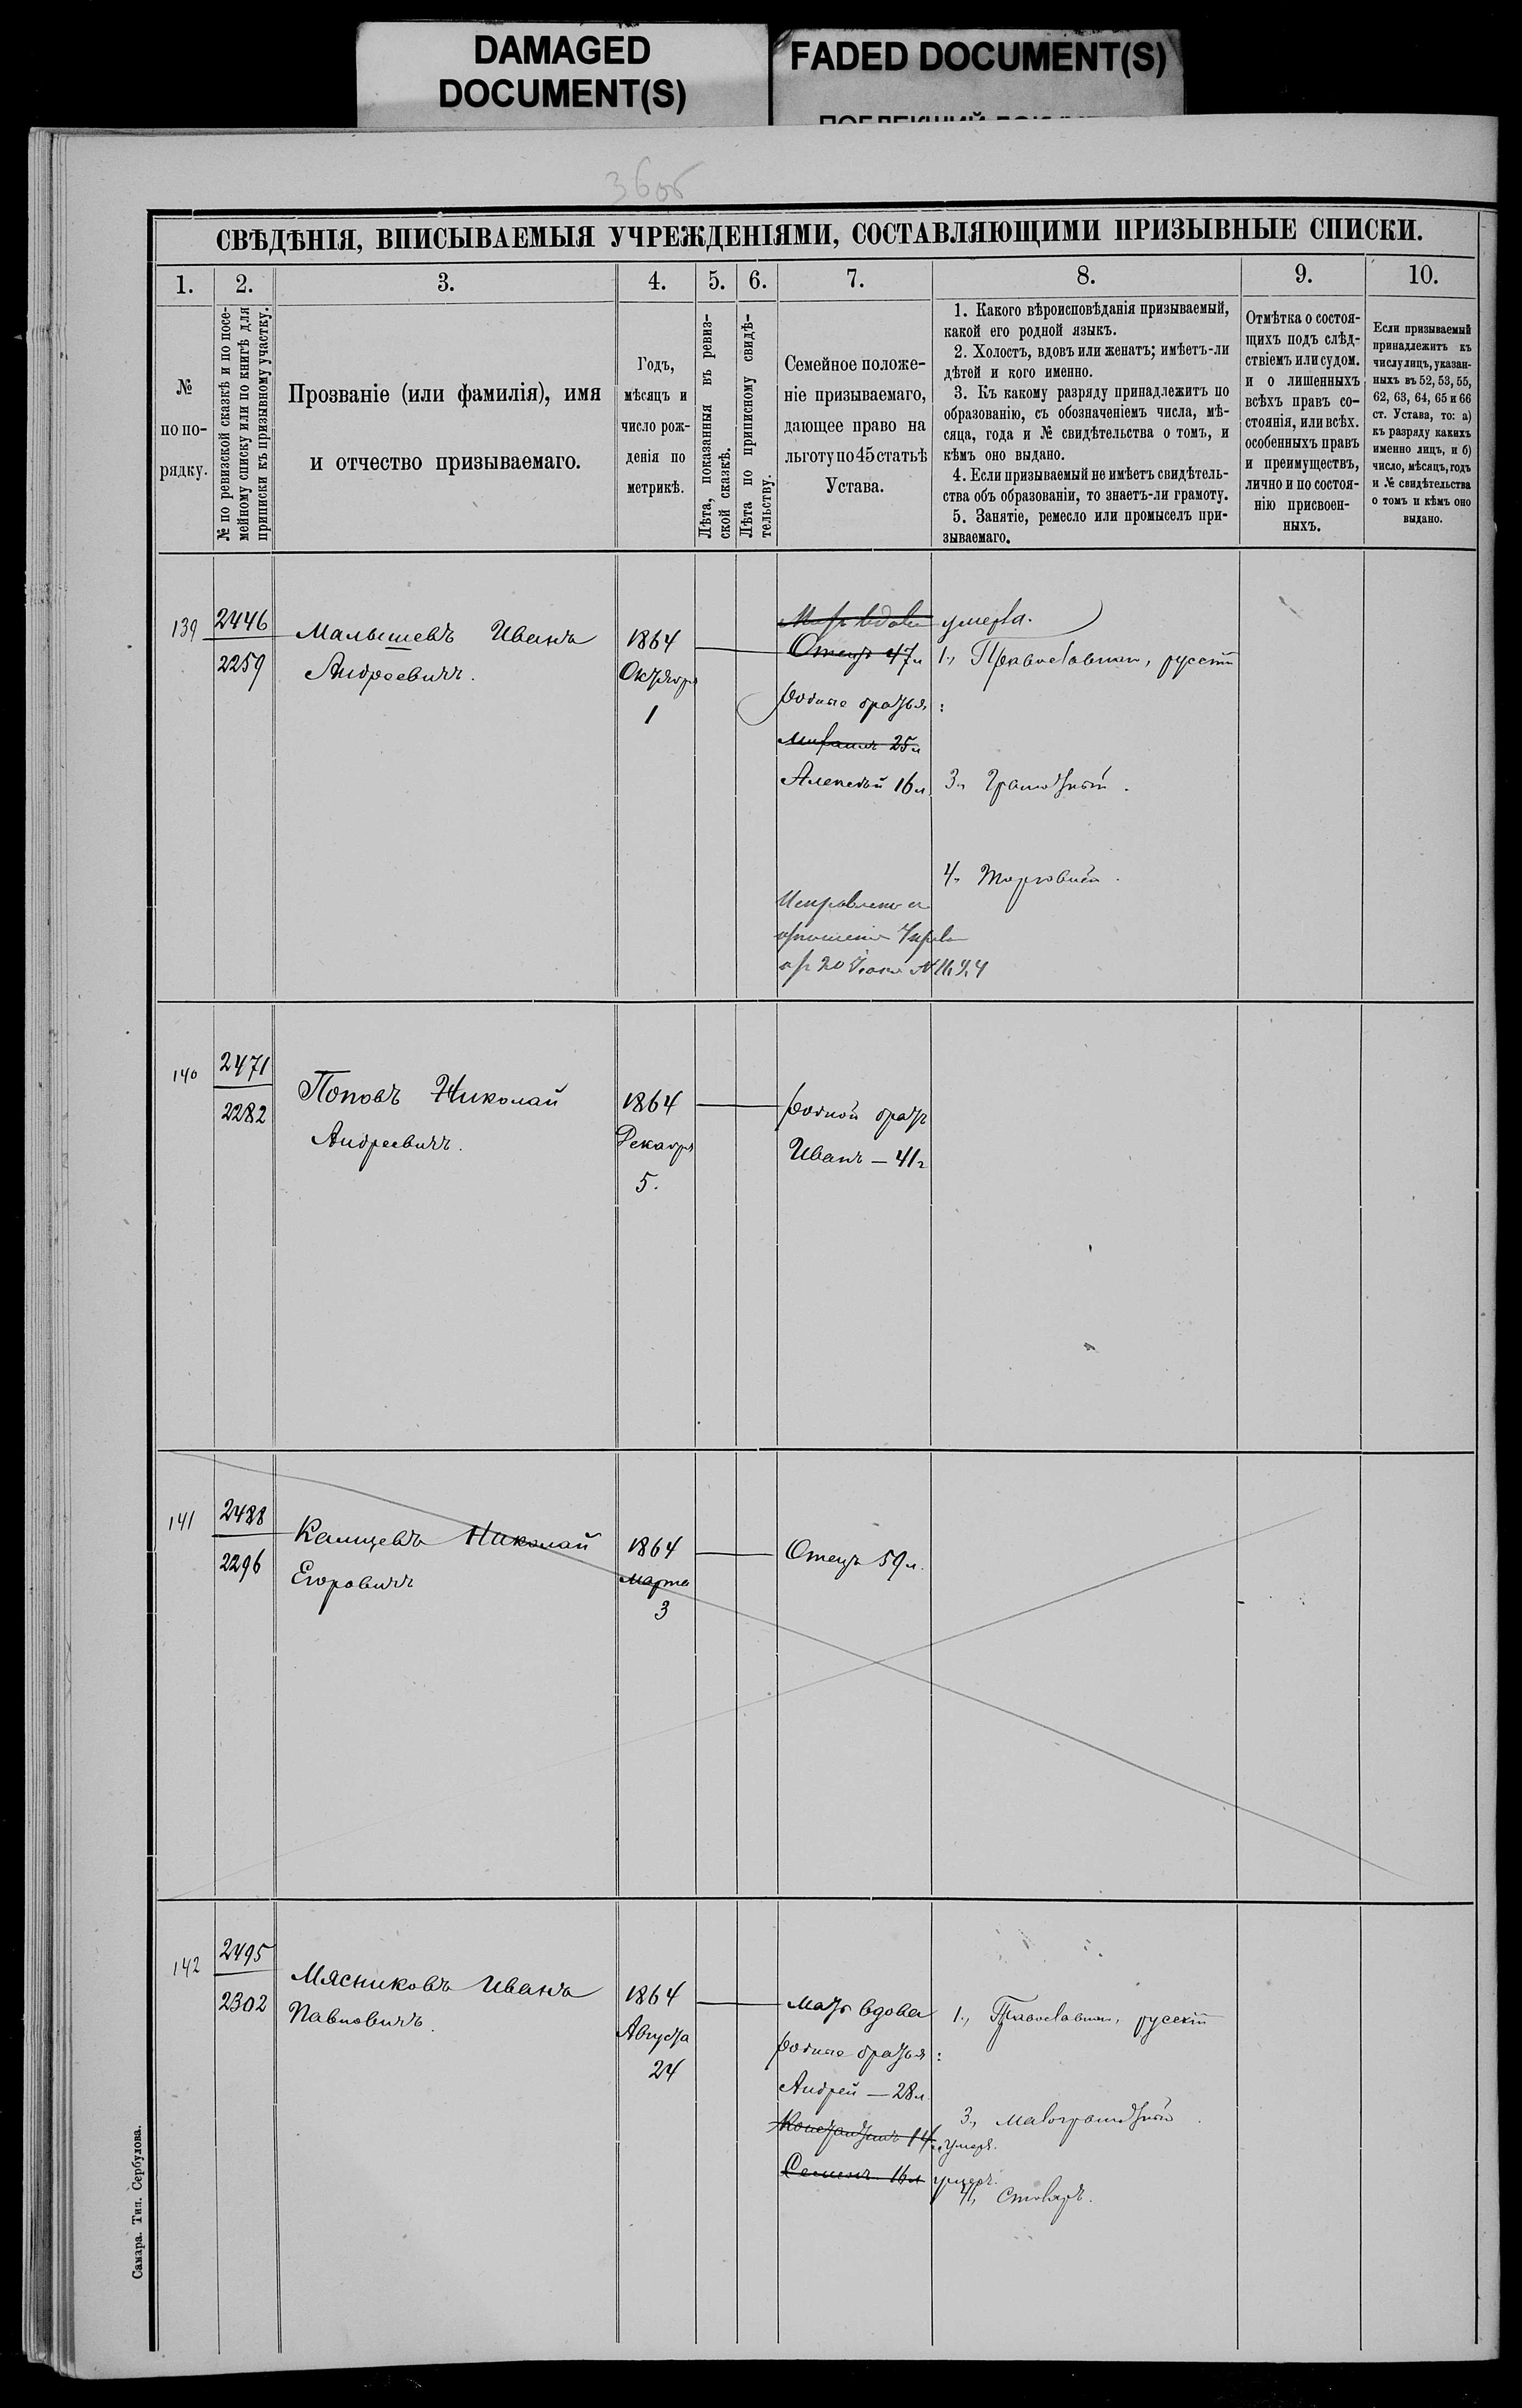 DAMAGED
DOCUMENT(S)
FADED DOCUMENT(S)
36об
СВѢДѢНІЯ, ВПИСЫВАЕМЫЯ УЧРЕЖДЕНІЯМИ, СОСТАВЛЯЮЩИМИ ПРИЗЫВНЫЕ СПИСКИ.
1.
№
по по-
рядку.
2.
№ по ревизской сказкѣ и по посе-
мейному списку или по книгѣ для
приписки къ призывному участку.
3.
Прозваніе (или фамилія), имя
и отчество призываемаго.
4.
Годъ,
мѣсяцъ и
число рож-
денія по
метрикѣ.
5.
Лѣта, показанныя въ ревиз-
ской сказкѣ.
6.
Лѣта по приписному свидѣ-
тельству.
7.
Семейное положе-
ніе призываемаго,
дающее право на
льготу по 45 статьѣ
Устава.
8.
1. Какого вѣроисповѣданія призываемый,
какой его родной языкъ.
2. Холостъ, вдовъ или женатъ; имѣетъ-ли
дѣтей и кого именно.
3. Къ какому разряду принадлежитъ по
образованію, съ обозначеніемъ числа, мѣ-
сяца, года и № свидѣтельства о томъ, и
кѣмъ оно выдано.
4. Если призываемый не имѣетъ свидѣтель-
ства объ образованіи, то знаетъ-ли грамоту.
5. Занятіе, ремесло или промыселъ при-
зываемаго.
9.
Отмѣтка о состоя-
щихъ подъ слѣд-
ствіемъ или судом.
и о лишенныхъ
всѣхъ правъ со-
стоянія, или всѣх.
особенныхъ правъ
и преимуществъ,
лично и по состоя-
нію присвоен-
ныхъ.
10.
Если призываемый
принадлежитъ къ
числу лицъ, указан-
ныхъ въ 52, 53, 55,
62, 63, 64, 65 и 66
ст. Устава, то: а)
къ разряду какихъ
именно лицъ, и б)
число, мѣсяцъ, годъ
и № свидѣтельства
о томъ и кѣмъ оно
выдано.
139
2446
2259
Малышевъ Иванъ
Андреевичъ.
1864
Октября
1
Мать вдова умерла.
Отецъ 47 л
родные братья:
Михаилъ 25 л
Алексѣй 16 л
1., Православный, русскій
3., Грамотный.
4., Торговый.
140
2471
2282
Поповъ Николай
Андреевичъ.
1864
Декабря
5.
родной братъ
Иванъ — 41 г
141
2488
2296
Калицевъ Николай
Егоровичъ
1864
марта
3
Отецъ 59 л.
142
2495
2302
Мясниковъ Иванъ
Павловичъ.
1864
Августа
24
Мать вдова
родные братья:
Андрей — 28 л.
Константинъ 14 умеръ.
Семенъ 16 л умеръ.
1., Православный, русскій
3., Малограмотный
4., Столяръ.
Самара. Тип. Сербулова.